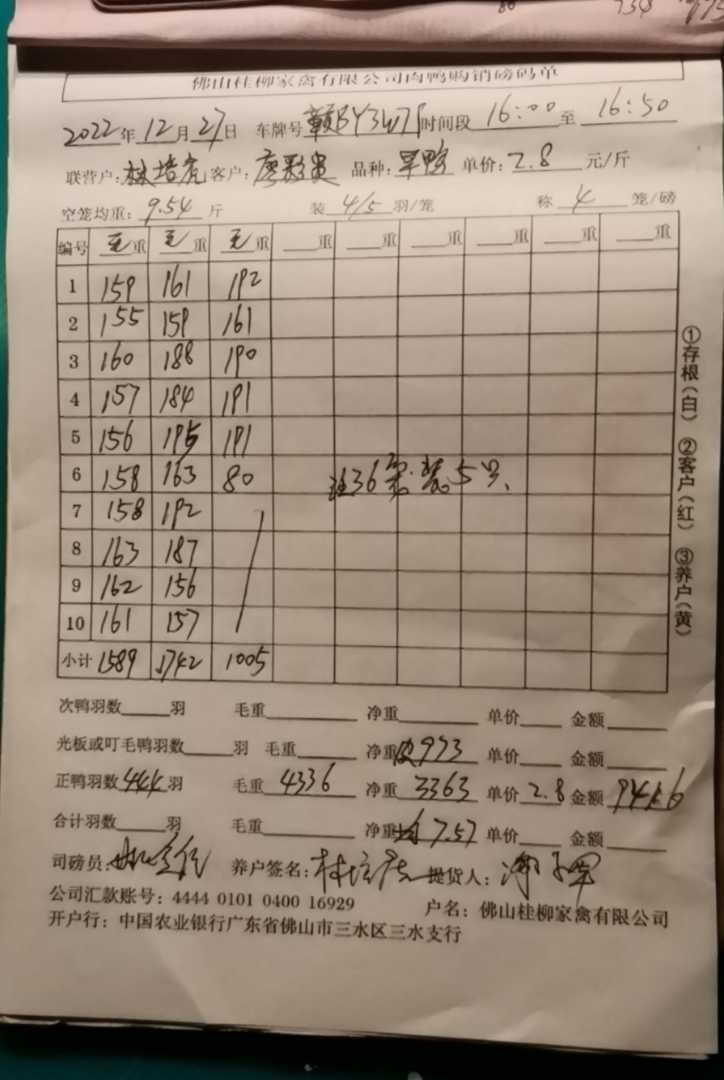 佛山桂柳家禽有限公司肉鸭购销磅码单
2022年12月27日 车牌号 时间段 16:00 至 16:50
联营户: 客户: 品种: 单价: 2.8 元/斤
空笼均重: 9.54 斤 装 4/5 羽/笼 称 4 笼/磅
编号 毛重 毛重 毛重 重 重 重 重 重 重
1 159 161 192
2 155 159 161
3 160 188 190
4 157 184 191
5 156 195 191
6 158 163 80 注36 装5只
7 158 192
8 163 187
9 162 156
10 161 157
小计 1589 1742 1005
次鸭羽数 羽 毛重 净重 单价 金额
光板或叮毛鸭羽数 羽 毛重 净重 皮973 单价 金额
正鸭羽数 444 羽 毛重 4336 净重 3363 单价 2.8 金额
合计羽数 羽 毛重 净重 均7.57 单价 金额
司磅员: 养户签名: 提货人:
公司汇款账号: 4444 0101 0400 16929 户名: 佛山桂柳家禽有限公司
开户行: 中国农业银行广东省佛山市三水区三水支行
①存根(白) ②客户(红) ③养户(黄)